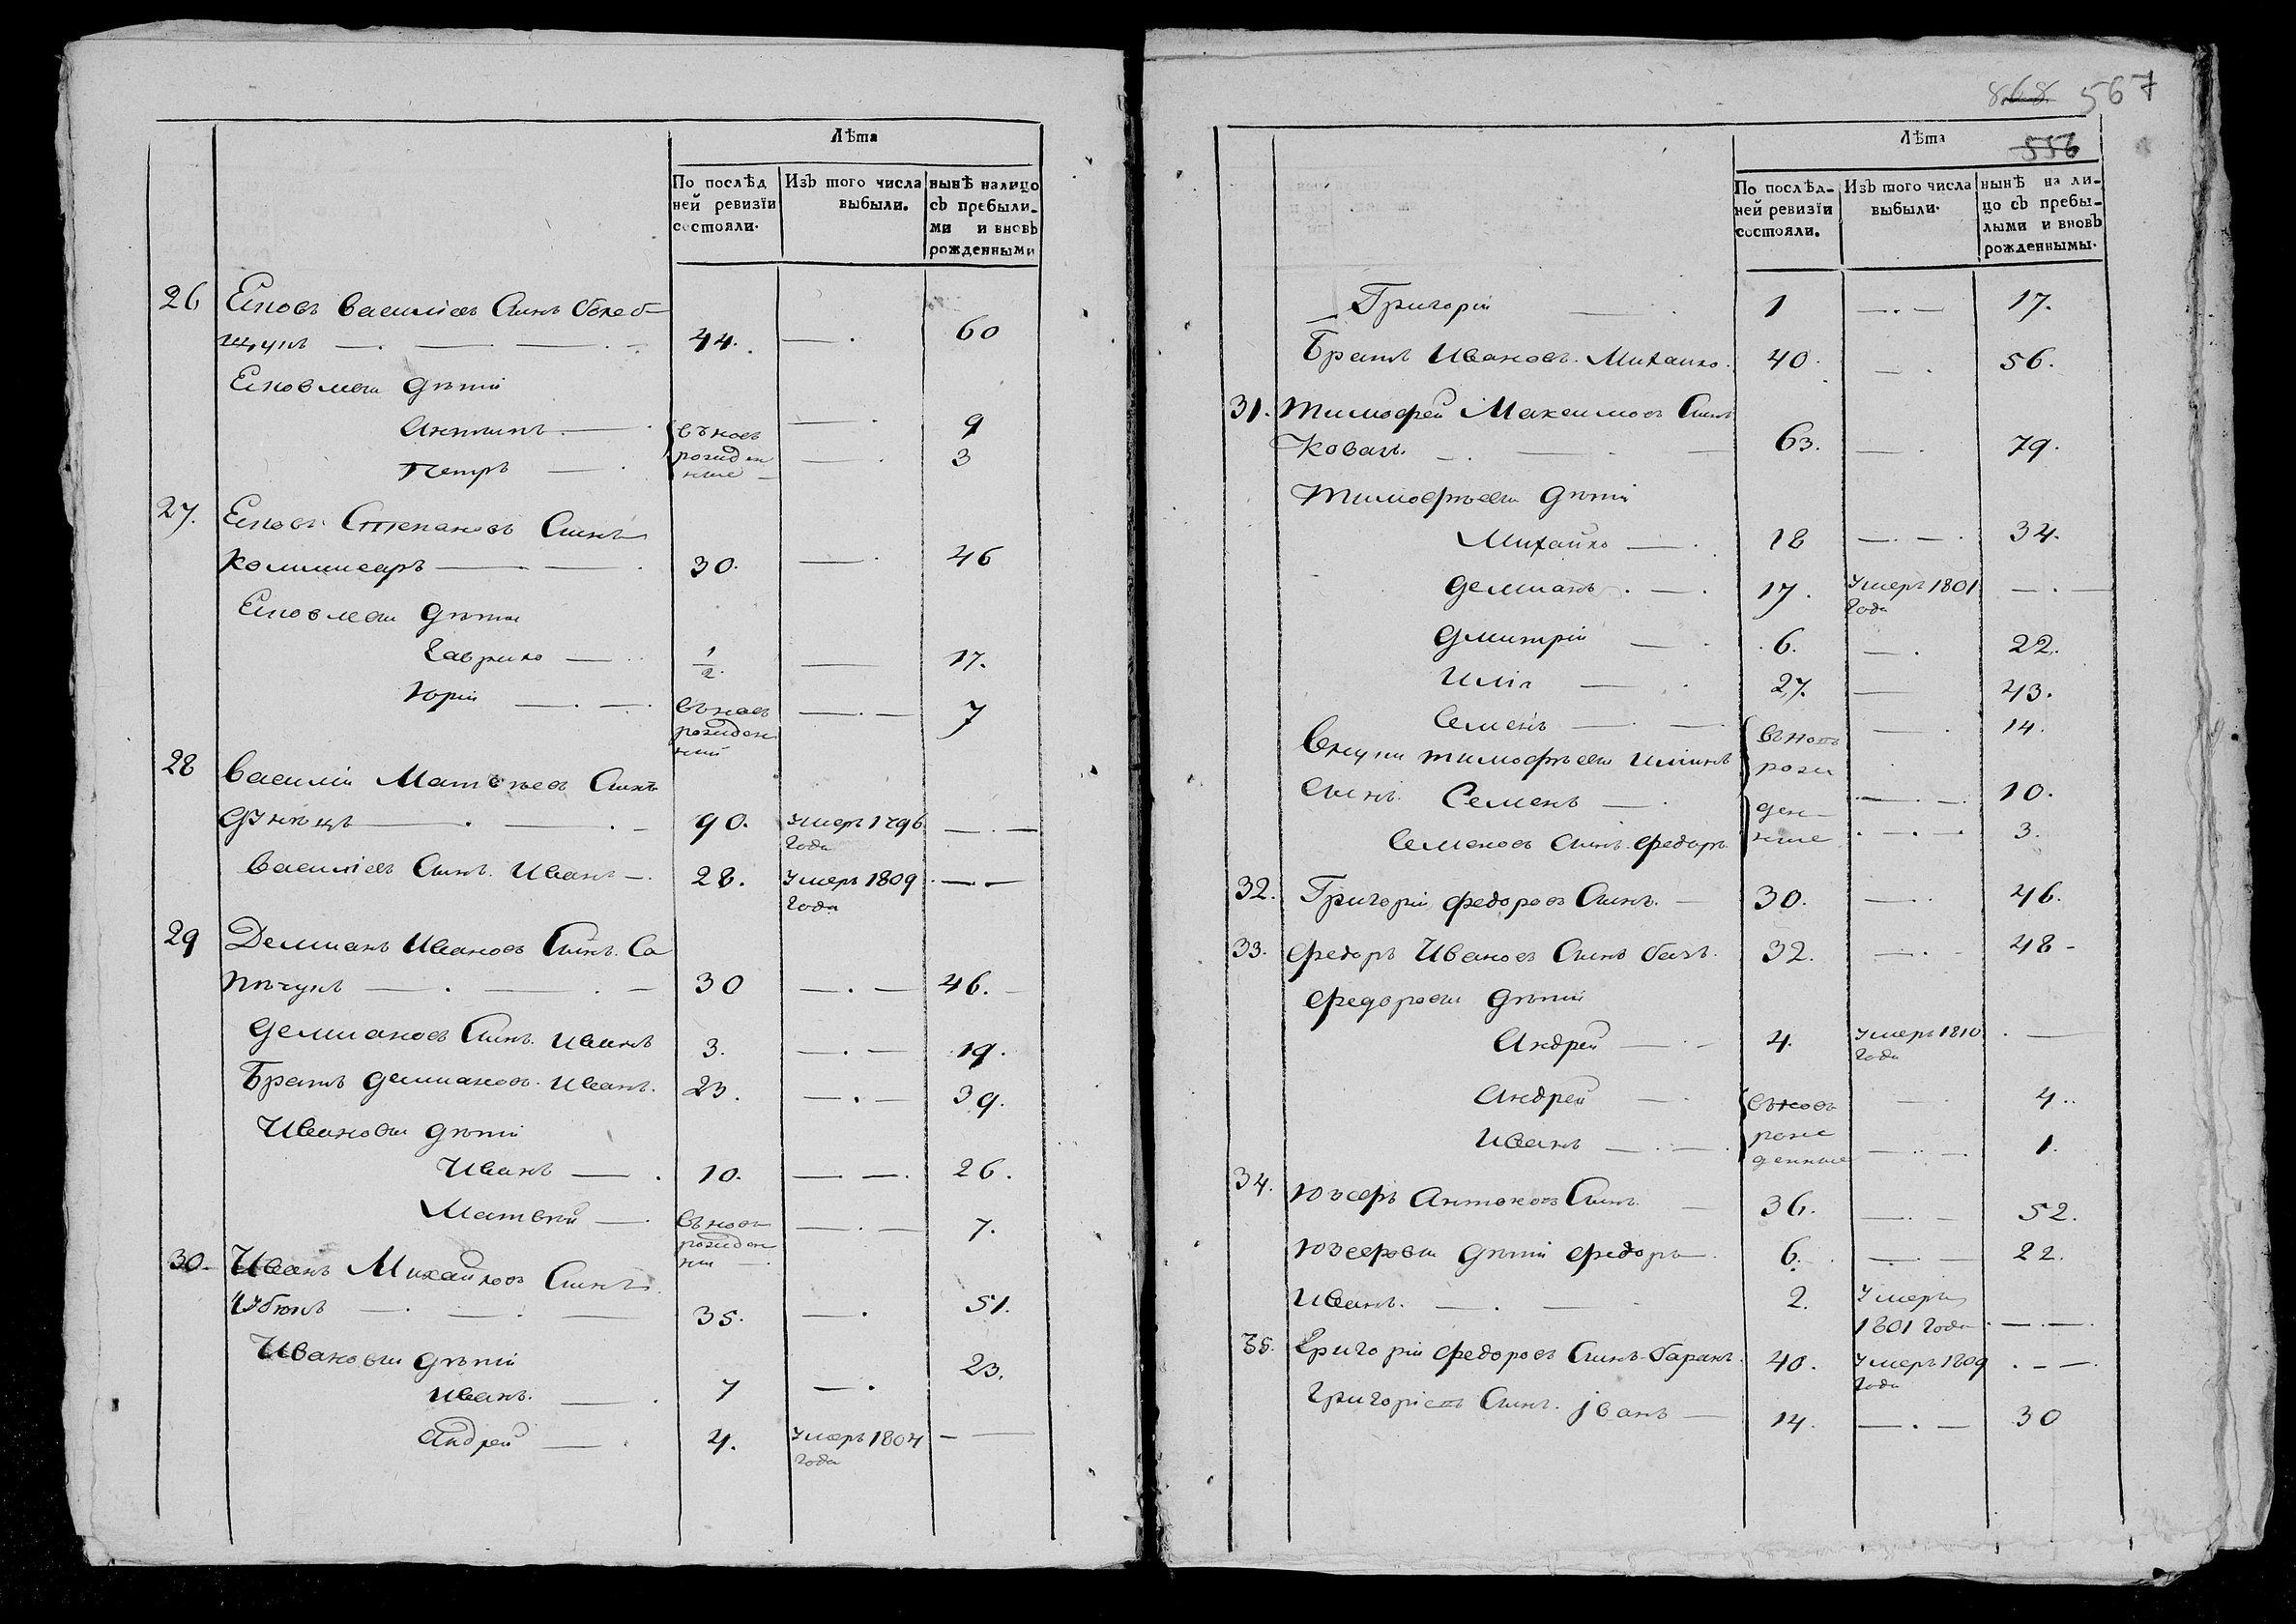 Лѣта
По послѣд
ней ревизіи
состояли.
Изъ того числа
выбыли.
нынѣ налицо
съ пребыли-
ми и вновь
рожденными
26 Яковъ Василіевъ Синъ
44. — 60
Яковлеви дѣти
Антипъ — вънов — 9
Петръ — рожден ные — 3
27. Яковъ Степановъ Синъ
Коммисаръ — 30. — 46
Яковлеви дѣти
Гаврило — 1/2. — 17.
Юрій — вьновъ рожден ний — 7
28 Василій Матвѣевъ Синъ
90. Умеръ 1796 Года —
Василіевъ Синъ Иванъ — 28. Умеръ 1809 Года —
29 Демианъ Ивановъ Синъ Са
пѣгунъ — 30 — 46.
Демиановъ Синъ Иванъ 3. — 19.
Братъ Демиановъ Иванъ. 23. — 39.
Иванови дѣти
Иванъ — 10. — 26.
Матвѣй — вьновъ рожден ни — 7.
30. Иванъ Михайловъ Синъ
35. — 51.
Иванови дѣти
Иванъ. — 7 — 23.
Андрей — 4. Умеръ 1804 Года —
868 567
Лѣта
556
По послѣд-
ней ревизіи
состояли.
Изъ того числа
выбыли.
нынѣ на ли-
цо съ пребы-
лыми и вновь
рожденнымы.
Григорій — 1 — 17.
Братъ Ивановъ Михайло. 40. — 56.
31. Тимофей Максимовъ Синъ
Коваль. — 63. — 79.
Тимофѣеви дѣти
Михайло — 18 — 34.
Демианъ. — 17. Умеръ 1801 Года —
Дмитрій — 6. — 22.
Илія — 27. — 43.
Семенъ — вьновъ — 14.
Внуки Тимофѣеви Иліинъ рож
Синъ Семенъ — ден — 10.
Семеновъ Синъ Федоръ ные — 3.
32. Григорій Федоровъ Синъ. — 30. — 46.
33. Федоръ Ивановъ Синъ 32. — 48
Федорови дѣти
Андрей — 4. Умеръ 1810 Года —
Андрей — вьновъ — 4.
Иванъ — рож денные — 1.
34. Юзефъ Антоновъ Синъ — 36. — 52.
Юзефови дѣти Федоръ 6. — 22.
Иванъ. — 2. Умеръ
1801 Года —
35. Григорій Федоровъ Синъ Баранъ. 40. Умеръ 1809 Года —
Григоріевъ Синъ. Іванъ — 14. — 30